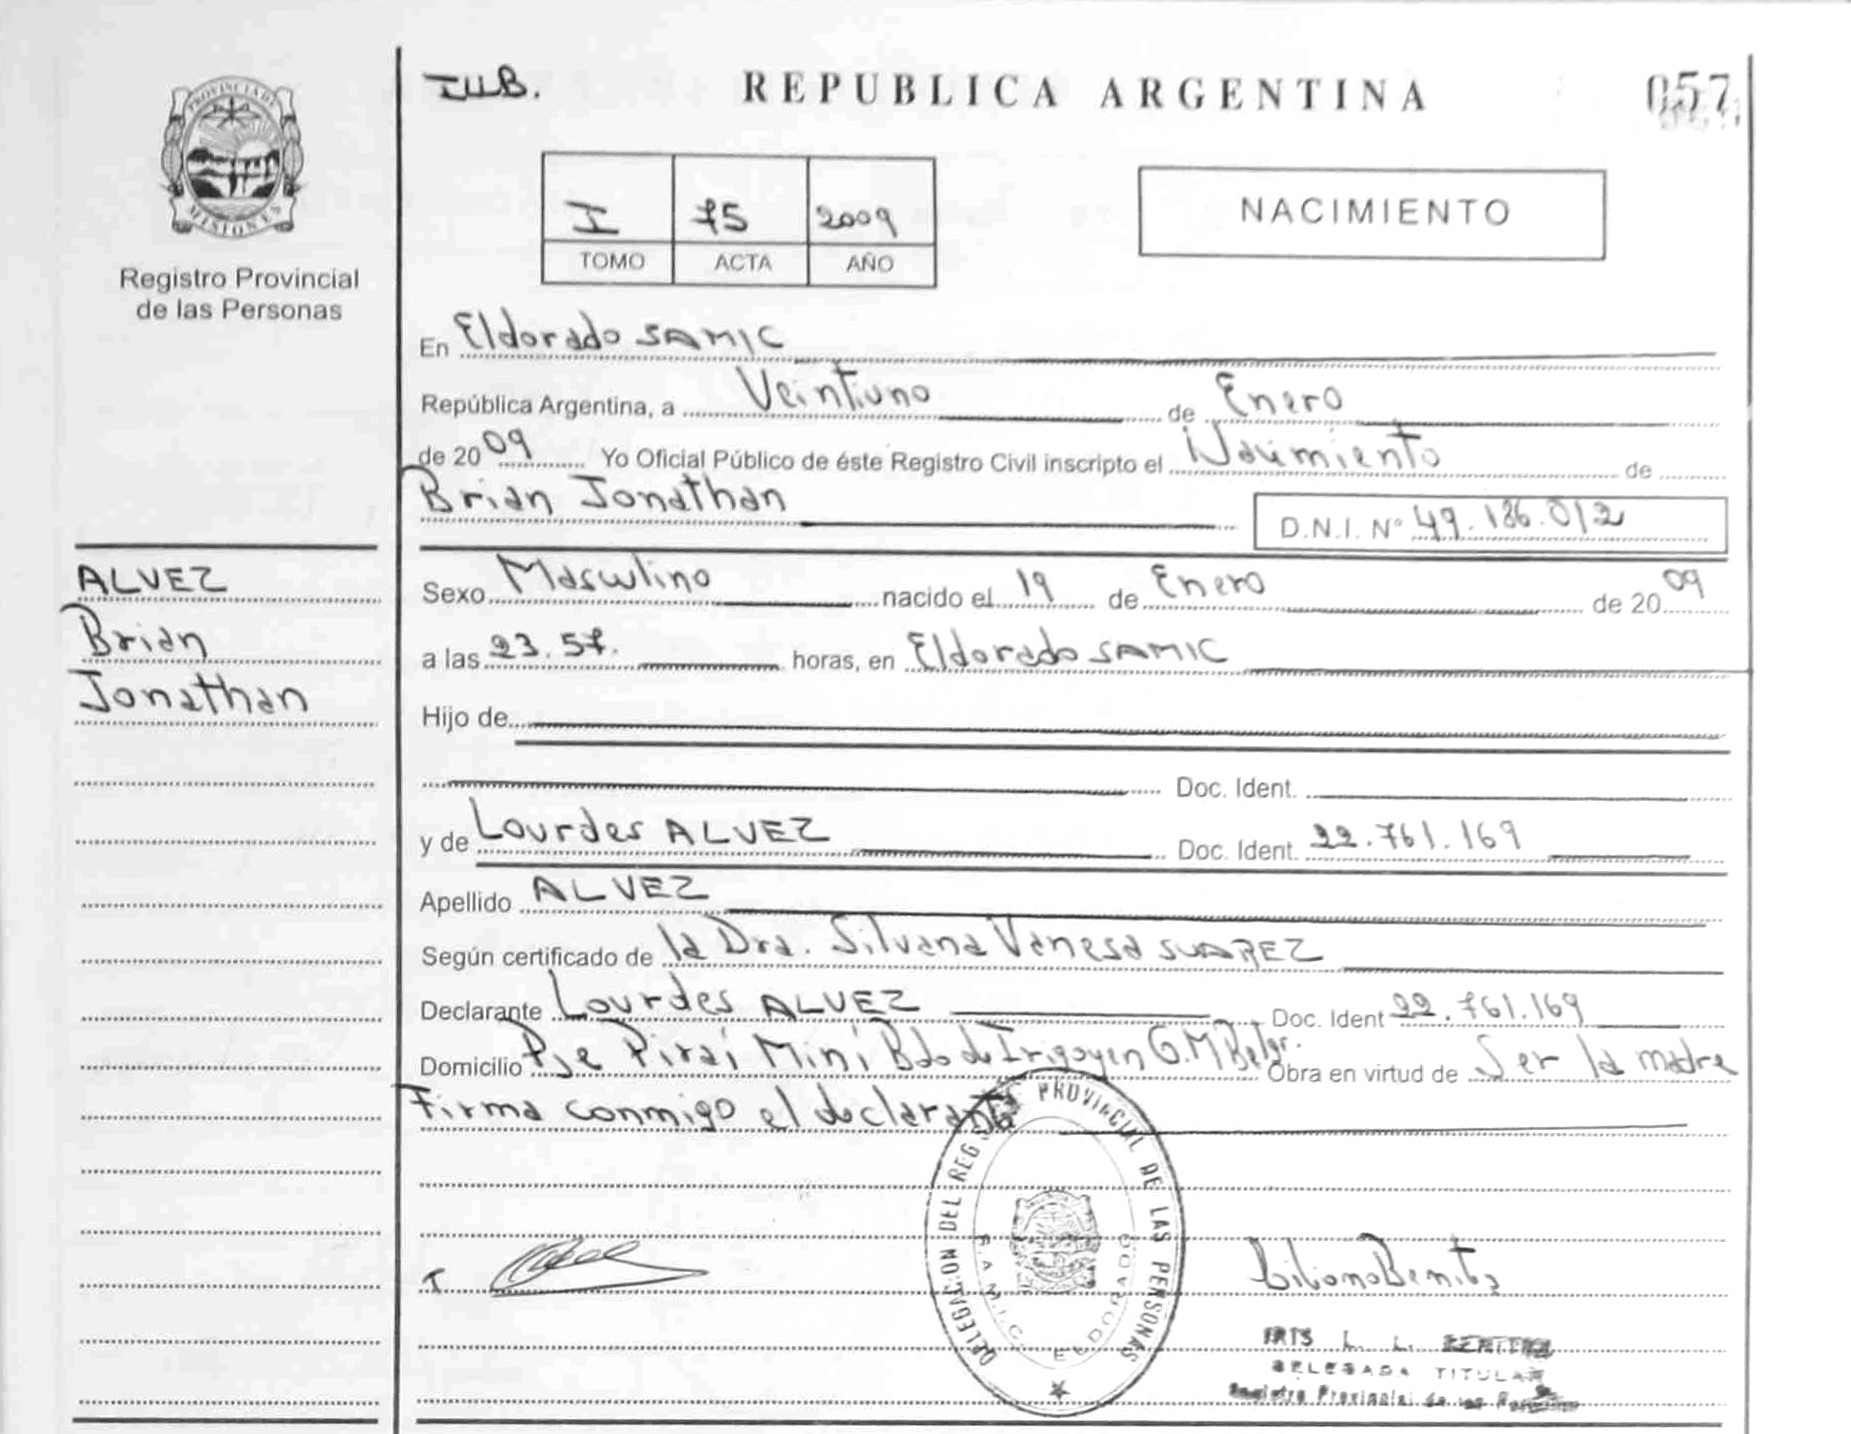 PROVINCIA DE
MISIONES
Registro Provincial
de las Personas
ALVEZ
Brian
Jonathan
REPUBLICA ARGENTINA
057
I 75 2009
TOMO ACTA AÑO
NACIMIENTO
En Eldorado SAMIC
República Argentina, a Veintiuno de Enero
de 2009 Yo Oficial Público de éste Registro Civil inscripto el Nacimiento de
Brian Jonathan D.N.I. Nº 49.186.012
Sexo Masculino nacido el 19 de Enero de 2009
a las 23.57. horas, en Eldorado SAMIC
Hijo de
Doc. Ident.
y de Lourdes ALVEZ Doc. Ident. 22.761.169
Apellido ALVEZ
Según certificado de la Dra. Silvana Vanesa SUAREZ
Declarante Lourdes ALVEZ Doc. Ident 22.761.169
Domicilio Pje Piraí Miní Bdo de Irigoyen G.M Belgr. Obra en virtud de Ser la madre
Firma conmigo el declarante
DELEGACION DEL REG PROVINCIAL DE LAS PERSONAS
S.A.M.I.C. ELDORADO
IRIS L. L. BENITEZ
DELEGADA TITULAR
Registro Provincial de las Personas